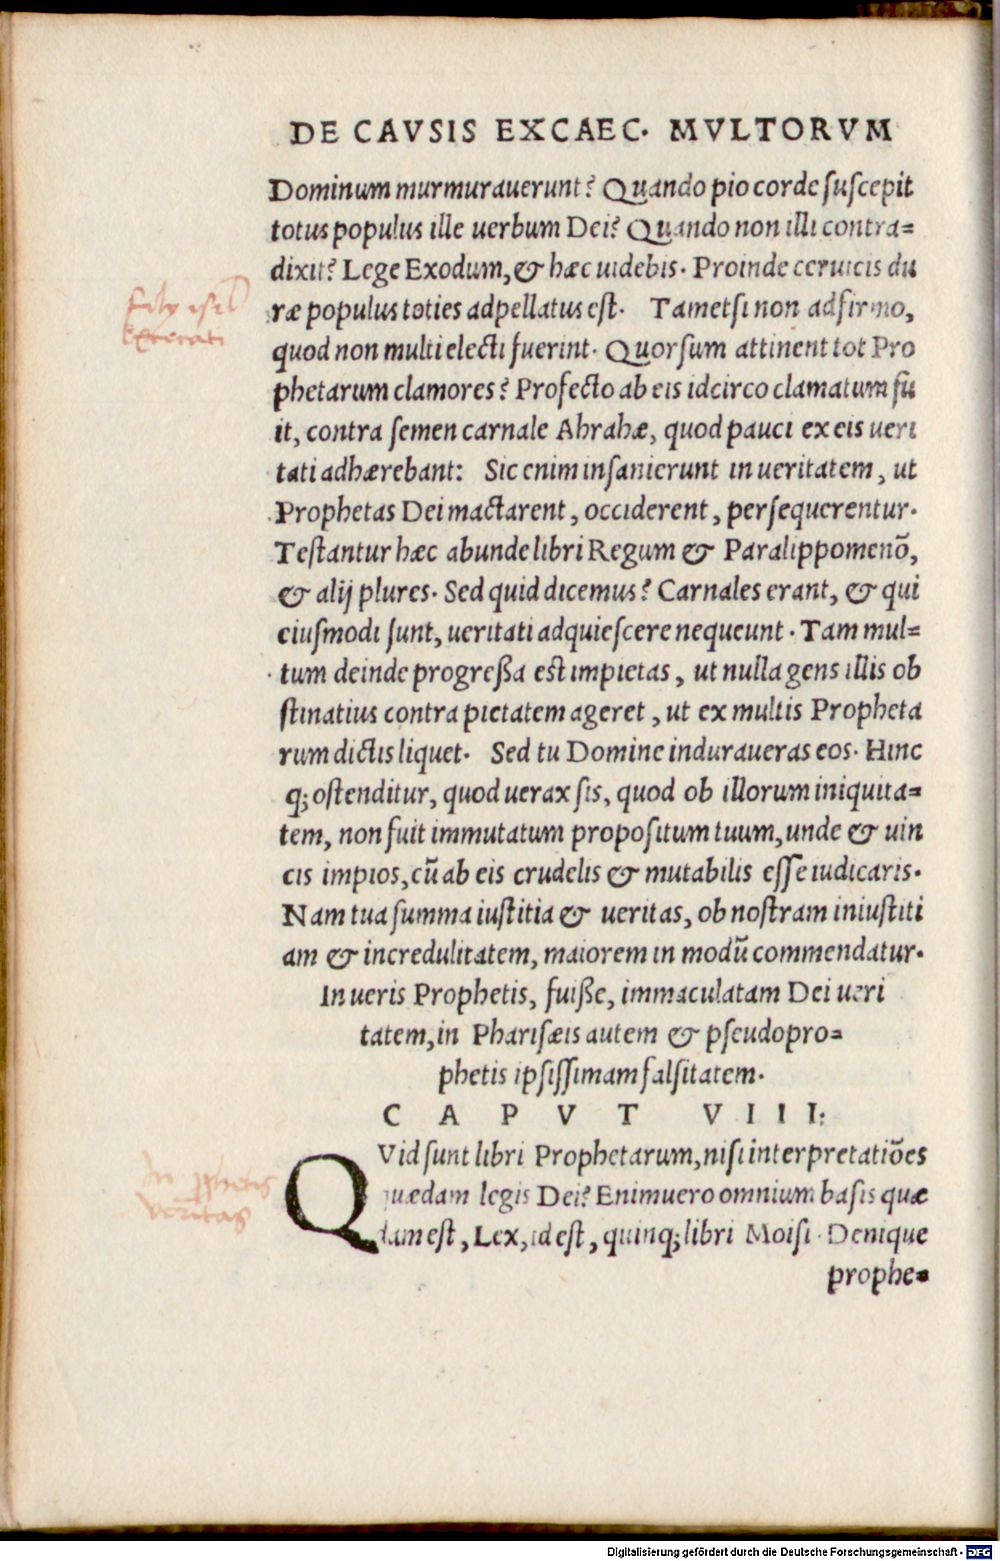 DE CAVSIS EXCAEC. MVLTORVM
Dominum murmurauerunt? Quando pio corde suscepit
totus populus ille uerbum Dei? Quando non illi contra=
dixit? Lege Exodum, & hæc uidebis. Proinde ceruicis du
ræ populus toties adpellatus est. Tametsi non adfirmo,
quod non multi electi fuerint. Quorsum attinent tot Pro
phetarum clamores? Profecto ab eis idcirco clamatum fu
it, contra semen carnale Abrahæ, quod pauci ex eis ueri
tati adhærebant: Sic enim insanierunt in ueritatem, ut
Prophetas Dei mactarent, occiderent, persequerentur.
Testantur hæc abunde libri Regum & Paralippomenō,
& alij plures. Sed quid dicemus? Carnales erant, & qui
eiusmodi sunt, ueritati adquiescere nequeunt. Tam mul=
tum deinde progreßa est impietas, ut nulla gens illis ob
stinatius contra pietatem ageret, ut ex multis Propheta
rum dictis liquet. Sed tu Domine induraueras eos. Hinc
q; ostenditur, quod uerax sis, quod ob illorum iniquita=
tem, non fuit immutatum propositum tuum, unde & uin
cis impios, cū ab eis crudelis & mutabilis esse iudicaris.
Nam tua summa iustitia & ueritas, ob nostram iniustiti
am & incredulitatem, maiorem in modū commendatur.
In ueris Prophetis, fuiße, immaculatam Dei ueri
tatem, in Pharisæis autem & pseudopro=
phetis ipsissimam falsitatem.
CAPVT VIII.
QVid sunt libri Prophetarum, nisi interpretatiões
quædam legis Dei? Enimuero omnium basis quæ
dam est, Lex, id est, quinq; libri Moisi. Denique
prophe=
In prophetis
veritas
Digitalisierung gefördert durch die Deutsche Forschungsgemeinschaft - DFG